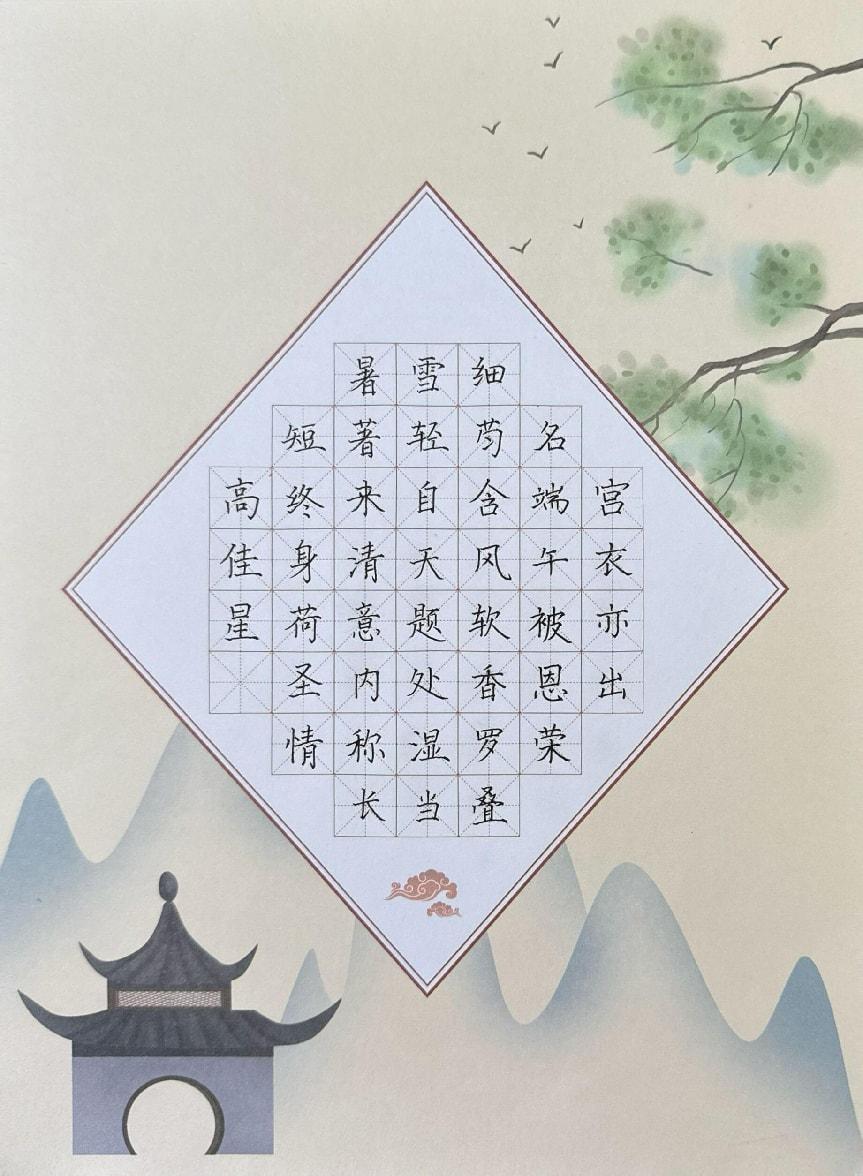 宫衣亦出
名端午被恩荣
细芍含风软香罗叠
雪轻自天题处湿当
暑著来清意内称长
短终身荷圣情
高佳星